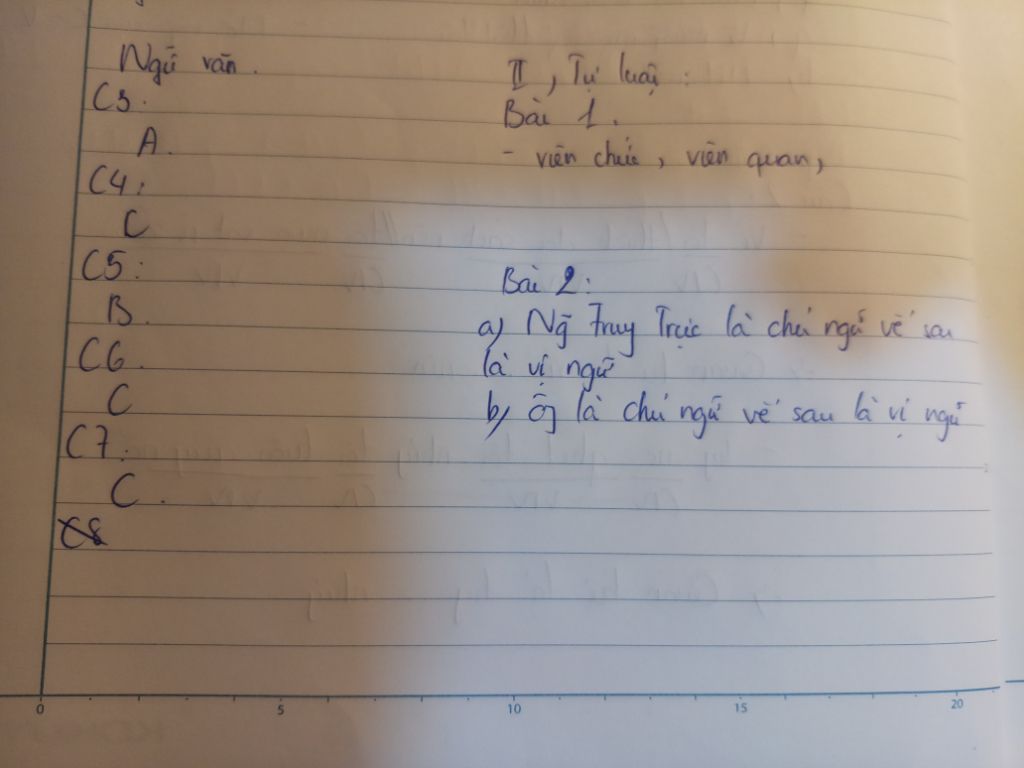 Ngữ văn.
C3:
A.
C4:
C
C5:
B.
C6.
C
C7:
C.
C8
II, Tự luận:
Bài 1.
- viên chức, viên quan,
Bài 2:
a) Ng Truy Trực là chủ ngữ vế sau
là vị ngữ
b) Ôg là chủ ngữ vế sau là vị ngữ
0 5 10 15 20